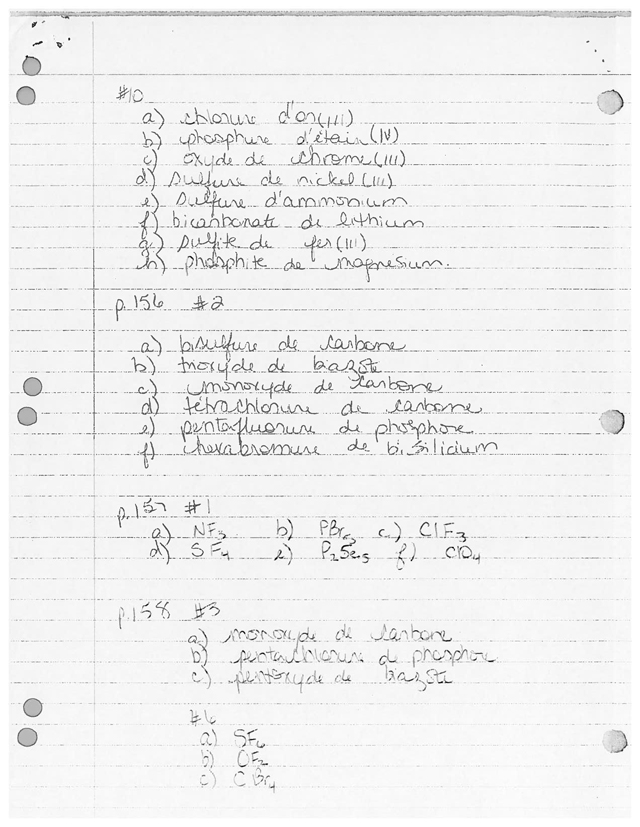 #10
a) chlorure d'or (III)
b) phosphure d'étain (IV)
c) oxyde de chrome (III)
d) sulfure de nickel (III)
e) sulfure d'ammonium
f) bicarbonate de lithium
g) sulfite de fer (III)
h) phosphite de magnesium.
p.156 #2
a) bisulfure de carbone
b) trioxyde de biazote
c) monoxyde de carbone
d) tétrachlorure de carbone
e) pentafluorure de phosphore
f) hexabromure de bisilicium
p.157 #1
a) NF3 b) PBr5 c) ClF3
d) SF4 e) P2Se5 f) ClO4
p.158 #5
a) monoxyde de carbone
b) pentachlorure de phosphore
c) pentoxyde de biazote
#6
a) SF6
b) OF2
c) CBr4